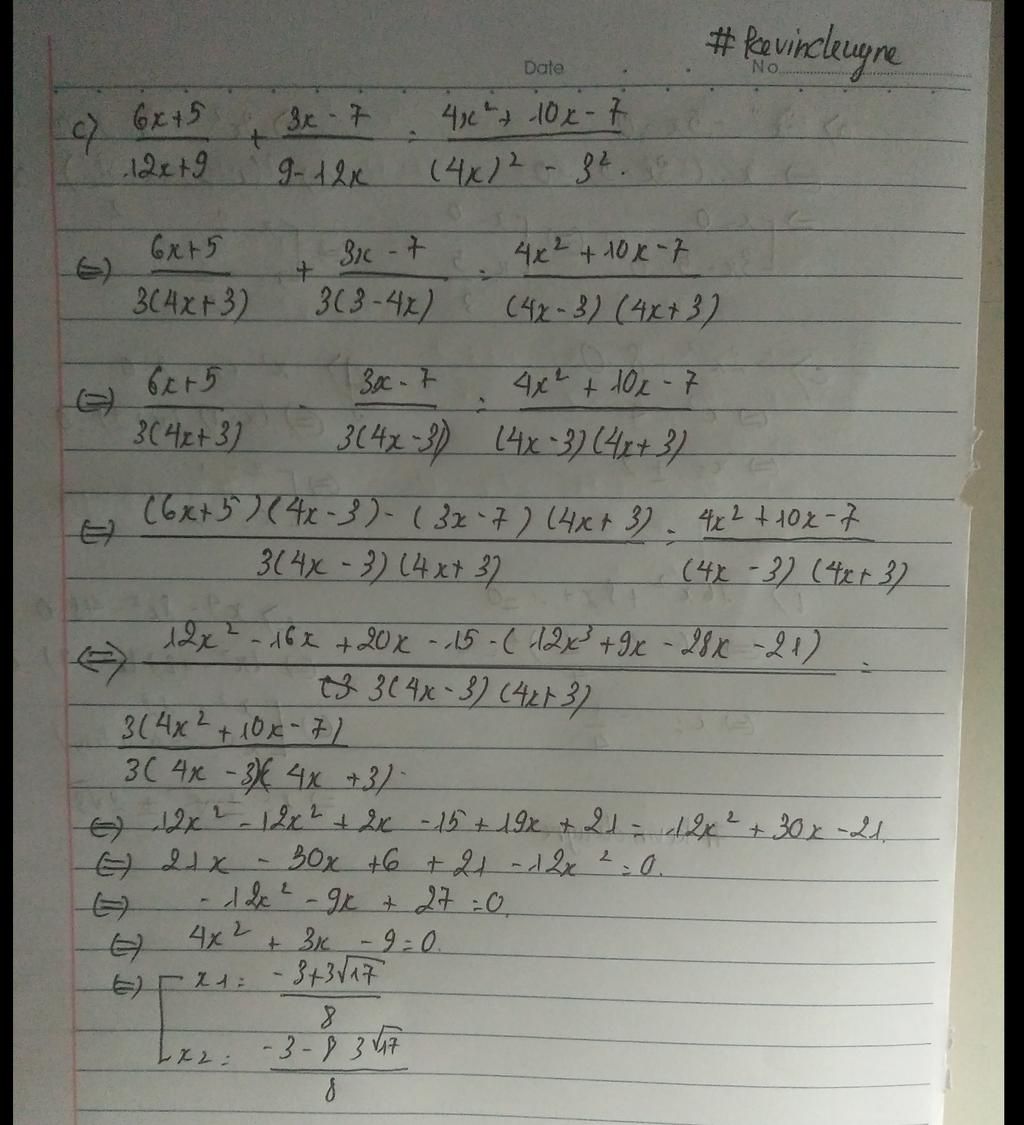 #kevincleugne
Date No
c) (6x+5)/(12x+9) + (3x-7)/(9-12x) = (4x²+10x-7)/((4x)²-3²).
(=) (6x+5)/(3(4x+3)) + (3x-7)/(3(3-4x)) = (4x²+10x-7)/((4x-3)(4x+3))
(=) (6x+5)/(3(4x+3)) - (3x-7)/(3(4x-3)) = (4x²+10x-7)/((4x-3)(4x+3))
(=) ((6x+5)(4x-3)-(3x-7)(4x+3))/(3(4x-3)(4x+3)) = (4x²+10x-7)/((4x-3)(4x+3))
<=> (12x²-16x+20x-15-(12x³+9x-28x-21))/(3(4x-3)(4x+3)) =
3(4x²+10x-7)/(3(4x-3)(4x+3))
(=) 12x²-12x²+2x-15+19x+21=12x²+30x-21.
(=) 21x-30x+6+21-12x²=0.
(=) -12x²-9x+27=0.
(=) 4x²+3x-9=0.
(=) [ x1= (-3+3√17)/8
x2= (-3-3√17)/8